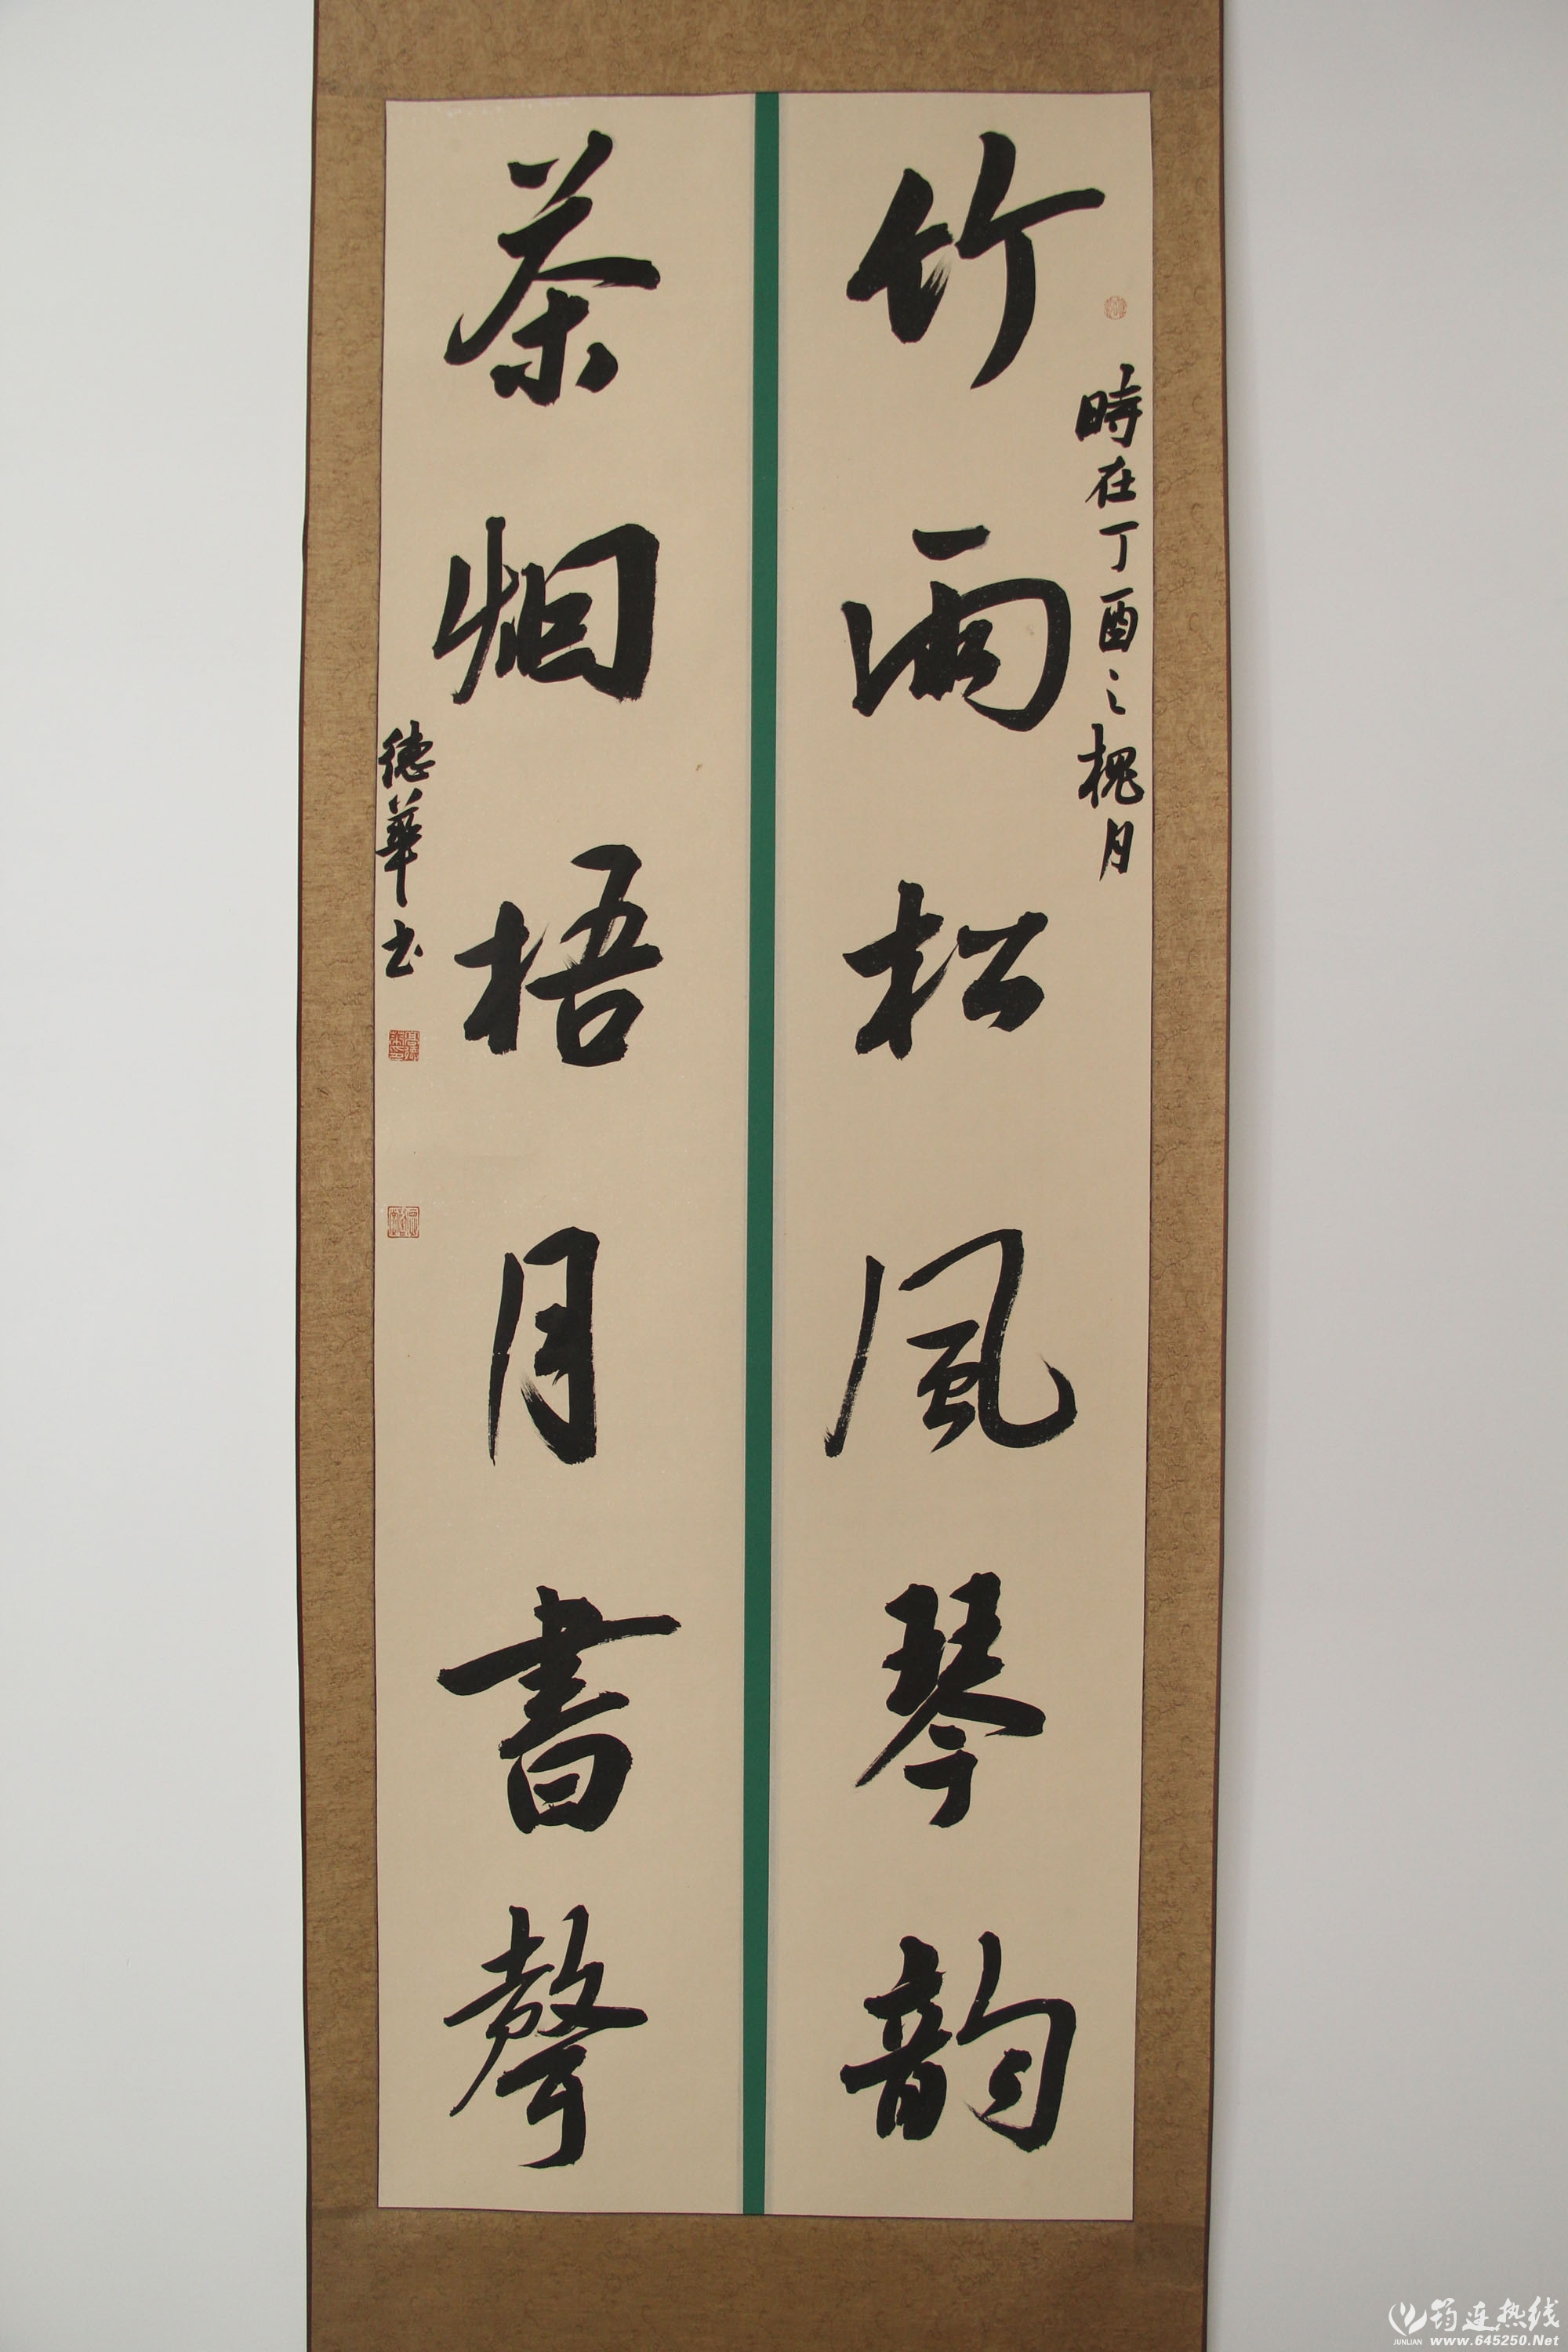 竹雨松風琴韵
時在丁酉之槐月
茶烟梧月書聲
德華书
筠连热线
JUNLIAN www.645250.Net